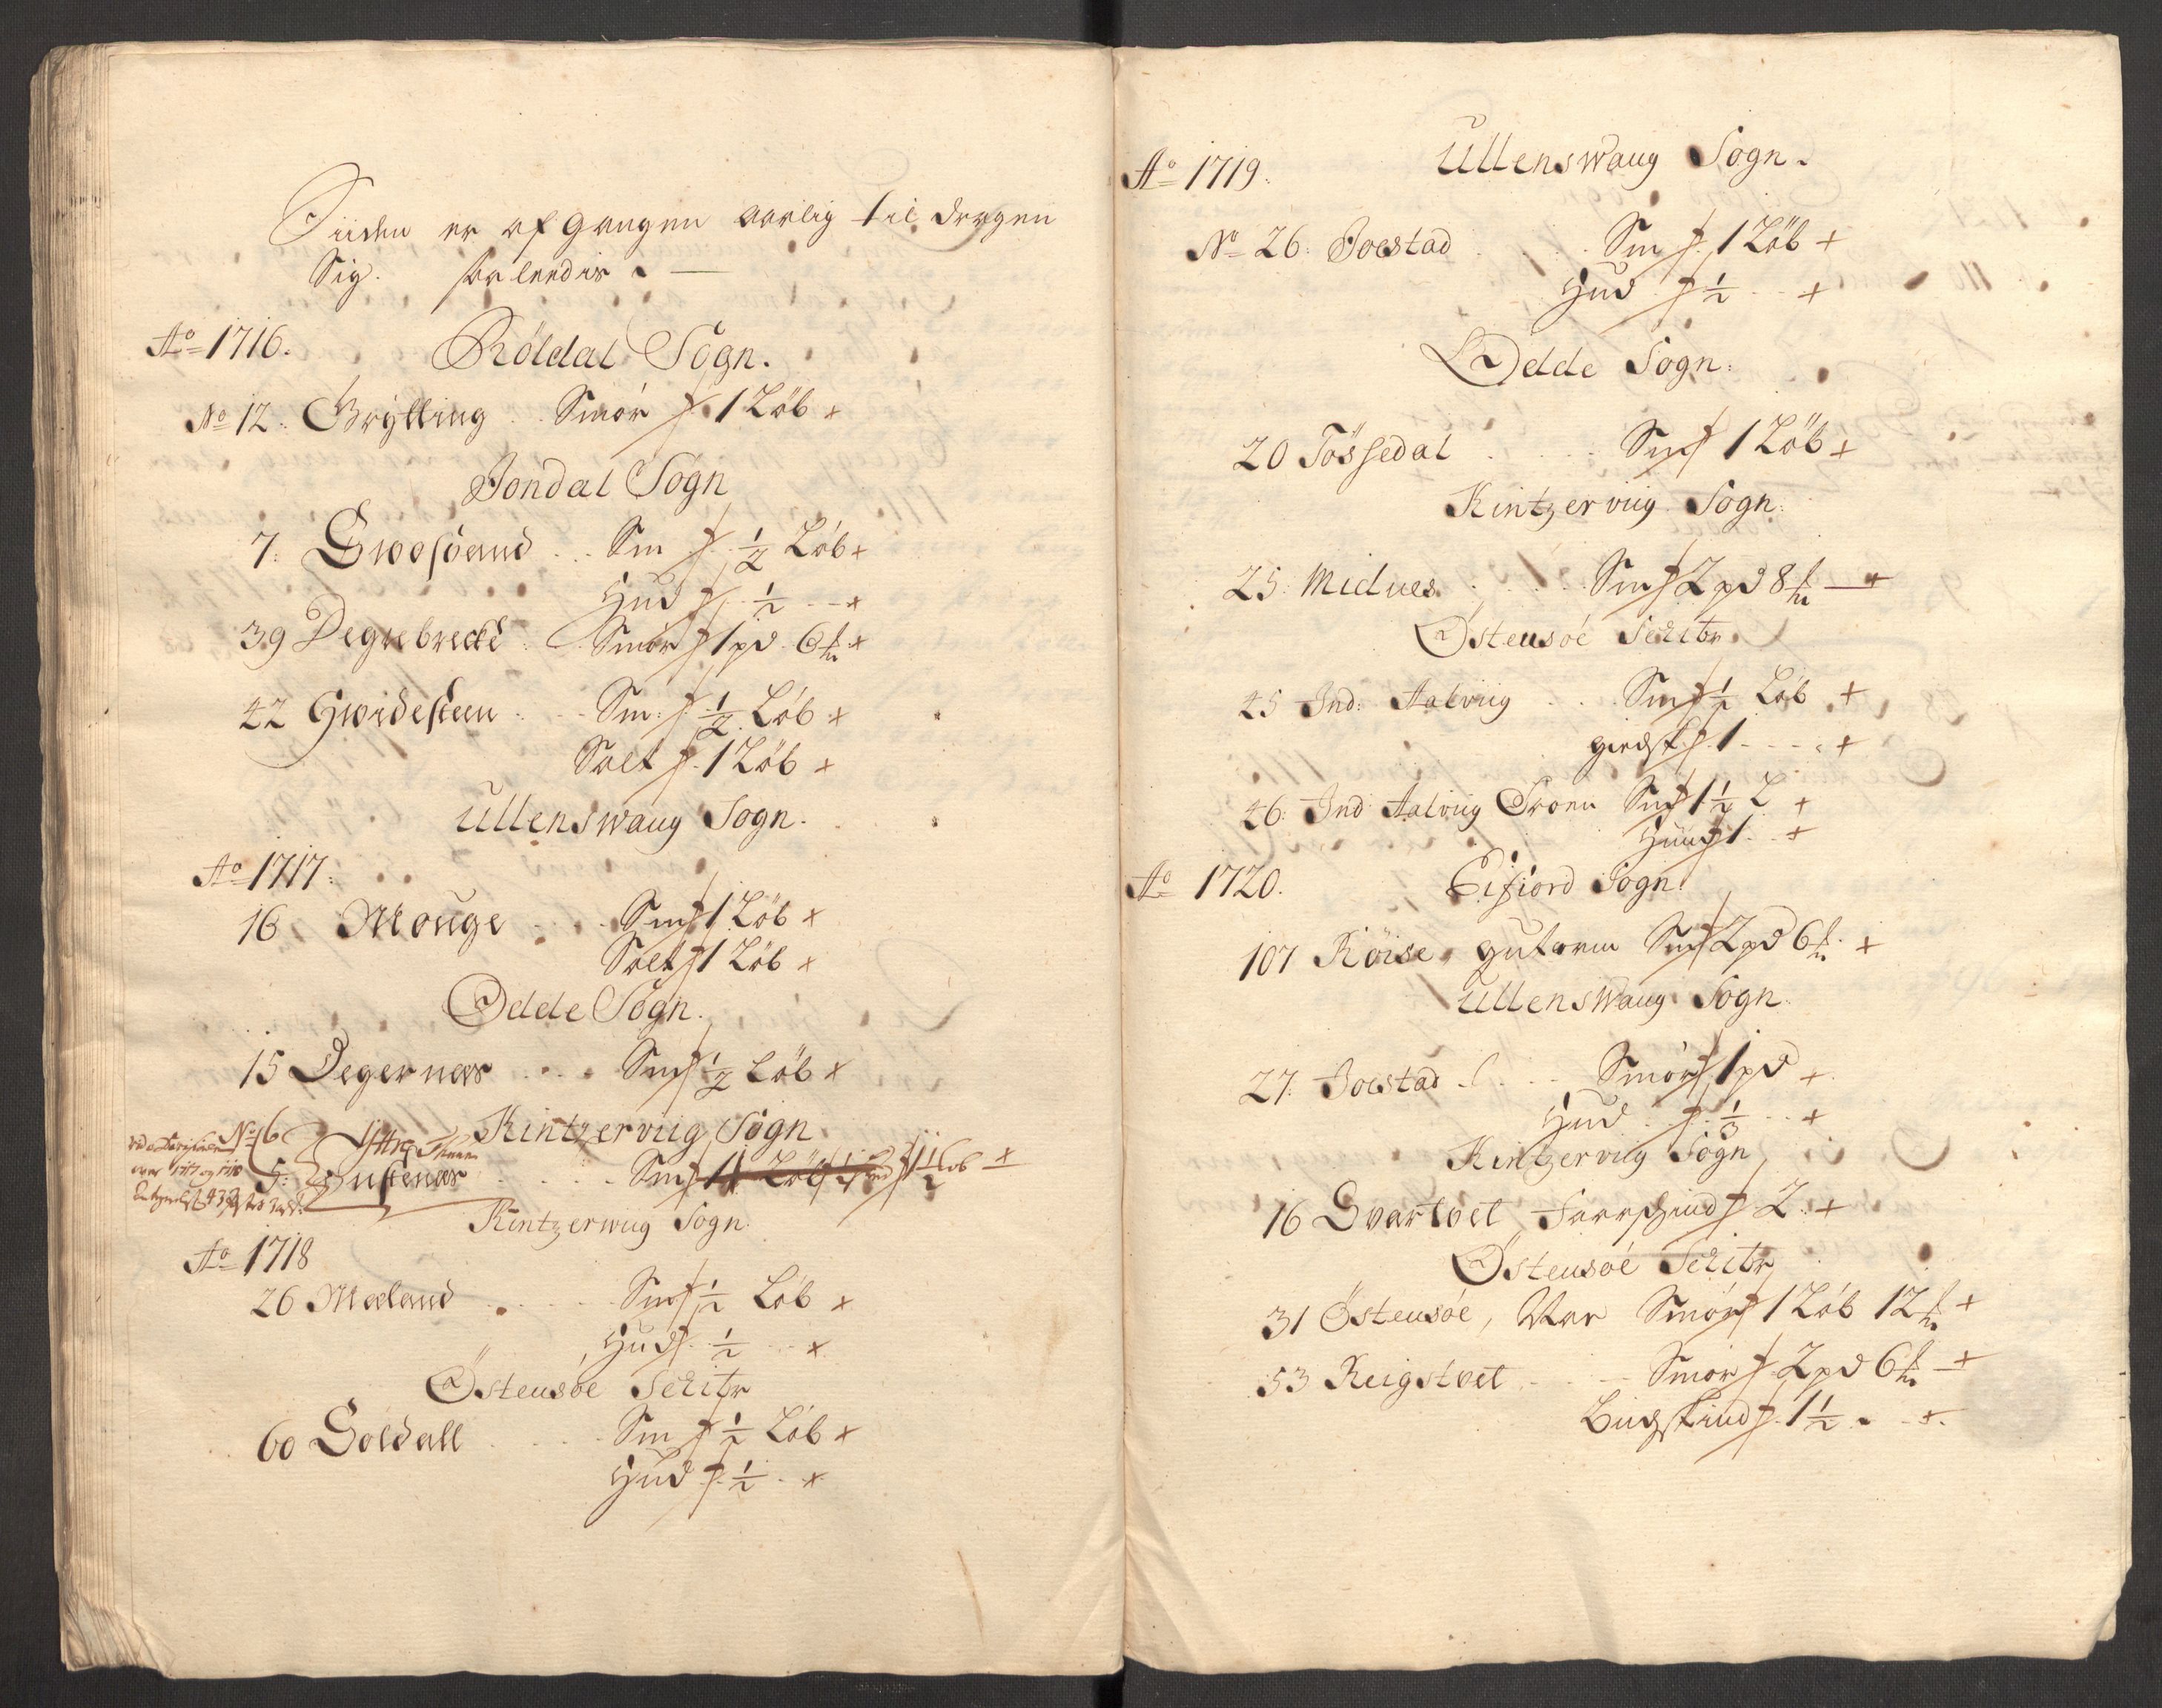 Siiden er afgangen aarlig til dragen
Sig. saaleedis.
Ao 1716. Röldal Sogn.
No 12. Grÿtting .. Smör f. 1 Löb +
Jondal Sogn
7. Swesand .. Sm f. 1/2 Löb +
Hud f. 1/2 +
39 Degrebrecke . Smör f 1 pd 6 ℔ +
42 Hwidesteen . Sm: f. 1/2 Löb +
Salt f. 1 Löb +
Ullenswaug Sogn.
Ao 1717.
16 Mouge .... Sm f 1 Löb +
Salt f 1 Löb +
Odde Sogn.
15 Degernæs .... Sm f 1/2 Löb +
Kintzerviig Sogn
No 6 Yttre
5. Bustenæs ..... Sm f 1 1/2 Löb +
Kintzerwug Sogn.
Ao 1718
26 Mæland ..... Sm f 1/2 Löb +
Hud f. 1/2 +
Östensöe Schibr
60 Soldall .... Sm f 1/2 Löb +
Hud f. 1/2 . +
Ao 1719. Ullenswaug Sogn.
No 26. Joestad ... Sm f. 1 Löb +
Hud f 1/2 .. +
Odde Sogn:
20 Tössedal .... Sm f 1 Löb +
Kintzerviig Sogn.
25. Midnes .... Sm f 2 pd 8 ℔ +
Östensöe Schibr.
45 Ind: Aalviig ... Sm f 1/2 Löb +
giedsk f. 1 .... +
46. Ind Aalviig Troen Sm f 1 1/2 L +
Huud f 1 .. +
Ao 1720. Eifiord Sogn.
107 Röise, gutorm Sm f 2 pd 6 ℔ +
Ullenswaug Sogn.
27. Joestad ... Smör f 1 pd +
Hud . f. 1/3 .. +
Kintzerviig Sogn
16 Svartvet, Faarskind f 2. +
Östensöe Schibr
31 Östensöe, Aar Smör f 1 Löb 12 ℔ +
53 Reigstvet .... Smör f 2 pd 6 ℔ +
Buchskind f. 1 1/2 . +